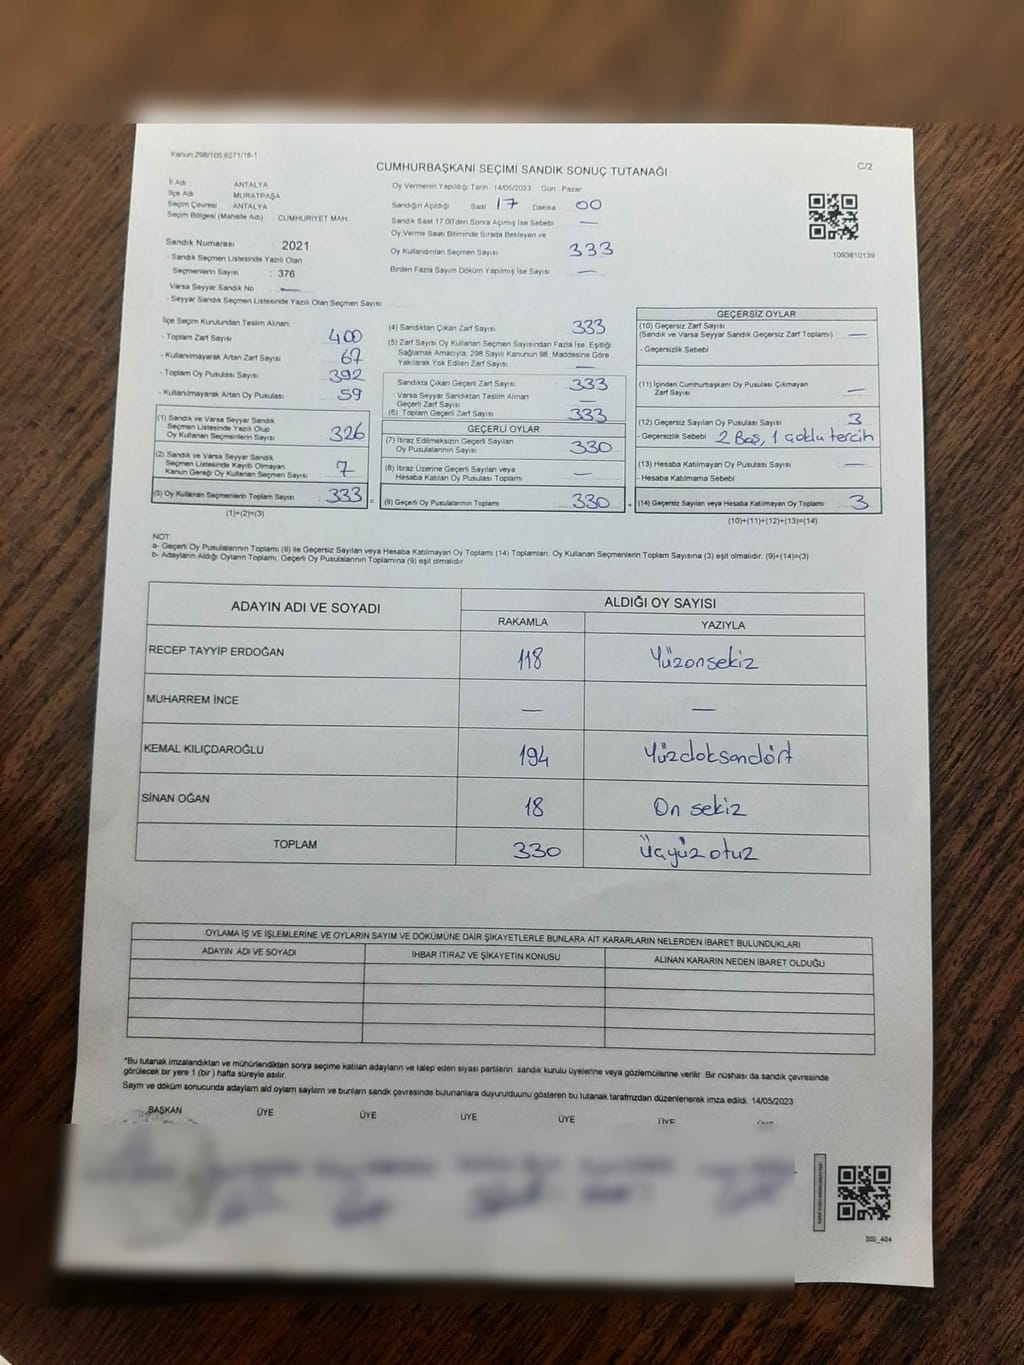 Kanun:298/105,6271/18-1
CUMHURBAŞKANI SEÇİMİ SANDIK SONUÇ TUTANAĞI
C/2
İl Adı ANTALYA
İlçe Adı MURATPAŞA
Seçim Çevresi : ANTALYA
Seçim Bölgesi (Mahalle Adı) : CUMHURİYET MAH.
Sandık Numarası 2021
- Sandık Seçmen Listesinde Yazılı Olan
Seçmenlerin Sayısı : 376
Varsa Seyyar Sandık No —
- Seyyar Sandık Seçmen Listesinde Yazılı Olan Seçmen Sayısı
Oy Vermenin Yapıldığı Tarih 14/05/2023 Gün Pazar
Sandığın Açıldığı Saat 17 Dakika 00
Sandık Saat 17:00'den Sonra Açımış İse Sebebi —
Oy Verme Saati Bitiminde Sırada Bekleyen ve
Oy Kullandırılan Seçmen Sayısı 333
Birden Fazla Sayım Döküm Yapılmış İse Sayısı —
1093810139
İlçe Seçim Kurulundan Teslim Alınan:
- Toplam Zarf Sayısı : 400
- Kullanılmayarak Artan Zarf Sayısı : 67
- Toplam Oy Pusulası Sayısı : 392
- Kullanılmayarak Artan Oy Pusulası : 59
(1) Sandık ve Varsa Seyyar Sandık
Seçmen Listesinde Yazılı Olup
Oy Kullanan Seçmenlerin Sayısı : 326
(2) Sandık ve Varsa Seyyar Sandık
Seçmen Listesinde Kayıtlı Olmayan
Kanun Gereği Oy Kullanan Seçmen Sayısı : 7
(3) Oy Kullanan Seçmenlerin Toplam Sayısı : 333 =
(1)+(2)=(3)
(4) Sandıktan Çıkan Zarf Sayısı : 333
(5) Zarf Sayısı Oy Kullanan Seçmen Sayısından Fazla İse, Eşitliği
Sağlamak Amacıyla, 298 Sayılı Kanunun 98. Maddesine Göre
Yakılarak Yok Edilen Zarf Sayısı : —
Sandıkta Çıkan Geçerli Zarf Sayısı : 333
Varsa Seyyar Sandıktan Teslim Alınan
Geçerli Zarf Sayısı : —
(6) Toplam Geçerli Zarf Sayısı : 333
GEÇERLİ OYLAR
(7) İtiraz Edilmeksizin Geçerli Sayılan
Oy Pusulasının Sayısı : 330
(8) İtiraz Üzerine Geçerli Sayılan veya
Hesaba Katılan Oy Pusulası Toplamı : —
(9) Geçerli Oy Pusulalarının Toplamı : 330 +
GEÇERSİZ OYLAR
(10) Geçersiz Zarf Sayısı
(Sandık ve Varsa Seyyar Sandık Geçersiz Zarf Toplamı) : —
- Geçersizlik Sebebi
(11) İçinden Cumhurbaşkanı Oy Pusulası Çıkmayan
Zarf Sayısı : —
(12) Geçersiz Sayılan Oy Pusulası Sayısı : 3
- Geçersizlik Sebebi : 2 Boş, 1 çoklu tercih
(13) Hesaba Katılmayan Oy Pusulası Sayısı : —
- Hesaba Katılmama Sebebi
(14) Geçersiz Sayılan veya Hesaba Katılmayan Oy Toplamı : 3
(10)+(11)+(12)+(13)=(14)
NOT:
a- Geçerli Oy Pusulalarının Toplamı (9) ile Geçersiz Sayılan veya Hesaba Katılmayan Oy Toplamı (14) Toplamları, Oy Kullanan Seçmenlerin Toplam Sayısına (3) eşit olmalıdır. (9)+(14)=(3)
b- Adayların Aldığı Oyların Toplamı, Geçerli Oy Pusulalarının Toplamına (9) eşit olmalıdır.
ADAYIN ADI VE SOYADI ALDIĞI OY SAYISI
RAKAMLA YAZIYLA
RECEP TAYYİP ERDOĞAN 118 Yüzonsekiz
MUHARREM İNCE — —
KEMAL KILIÇDAROĞLU 194 Yüzdoksandört
SİNAN OĞAN 18 On sekiz
TOPLAM 330 Üçyüz otuz
OYLAMA İŞ VE İŞLEMLERİNE VE OYLARIN SAYIM VE DÖKÜMÜNE DAİR ŞİKAYETLERLE BUNLARA AİT KARARLARIN NELERDEN İBARET BULUNDUKLARI
ADAYIN ADI VE SOYADI İHBAR İTİRAZ VE ŞİKAYETİN KONUSU ALINAN KARARIN NEDEN İBARET OLDUĞU
*Bu tutanak imzalandıktan ve mühürlendikten sonra seçime katılan adayların ve talep eden siyasi partilerin sandık kurulu üyelerine veya gözlemcilerine verilir. Bir nüshası da sandık çevresinde
görülecek bir yere 1 (bir ) hafta süreyle asılır.
Sayım ve döküm sonucunda adayların ald oyların sayların ve bunların sandık çevresinde bulunanlara duyurulduunu gösteren bu tutanak tarafmzdan düzenlenerek imza edildi. 14/05/2023
BAŞKAN ÜYE ÜYE ÜYE ÜYE ÜYE
SSI_404